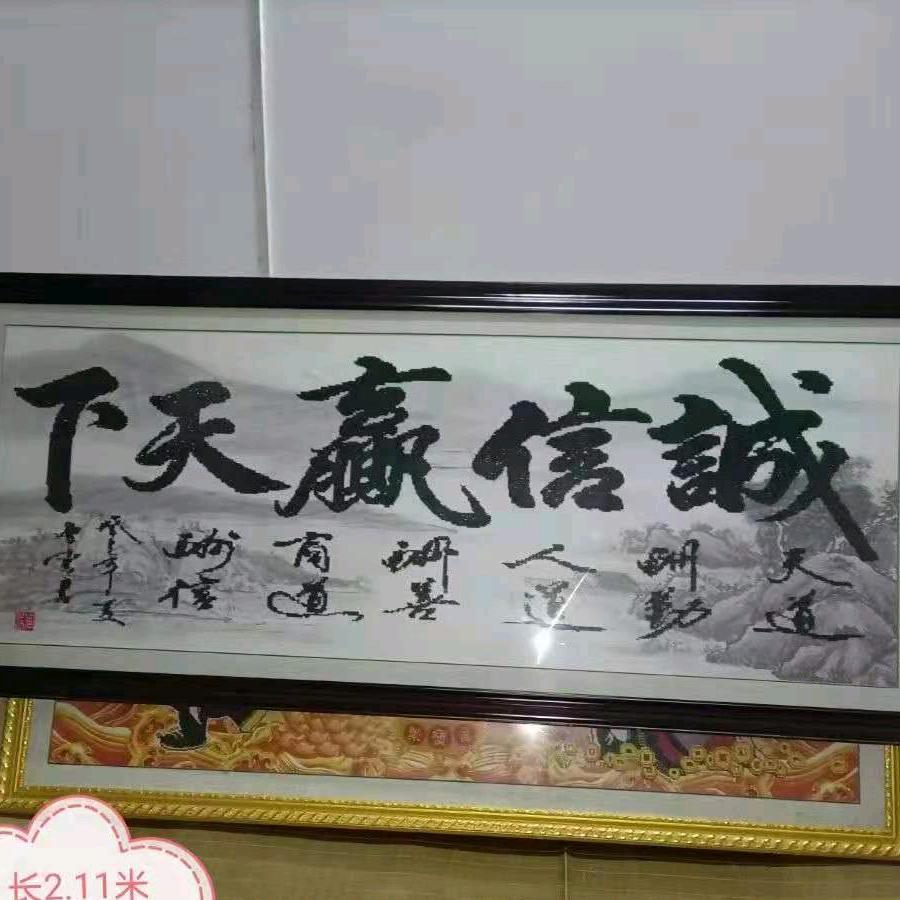 誠信赢天下
天道
酬勤
人道
酬善
商道
酬信
长2.11米